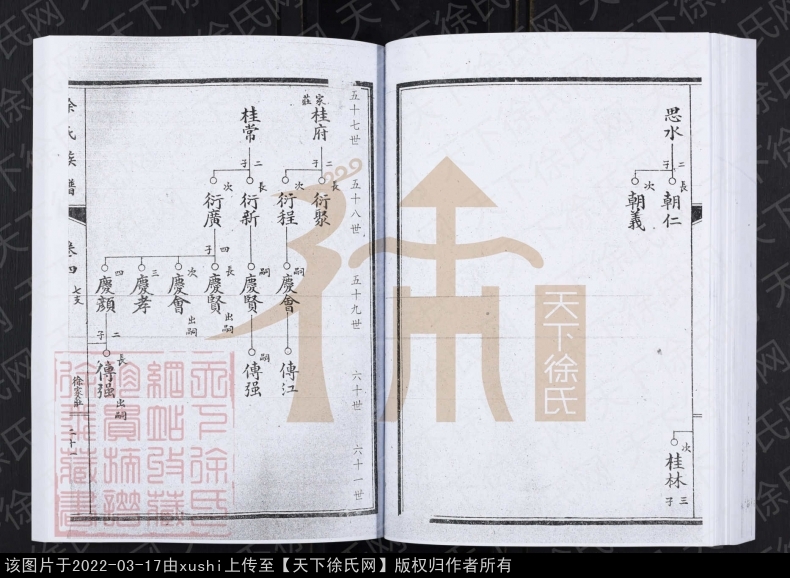 思水
二子
長
朝仁
次
朝義
次
桂林
三子
五十七世
五十八世
五十九世
六十世
六十一世
家莊
桂府
二子
長
衍聚
次
衍程
嗣
慶會
傳江
桂常
二子
長
衍新
嗣
慶賢
嗣
傳强
次
衍廣
四子
長
慶賢
出嗣
次
慶會
出嗣
三
慶孝
四
慶顏
二子
長
傳强
出嗣
徐氏族譜
卷四
七支
徐家莊
二十一
天下徐氏
天下徐氏网
该图片于2022-03-17由xushi上传至【天下徐氏网】版权归作者所有